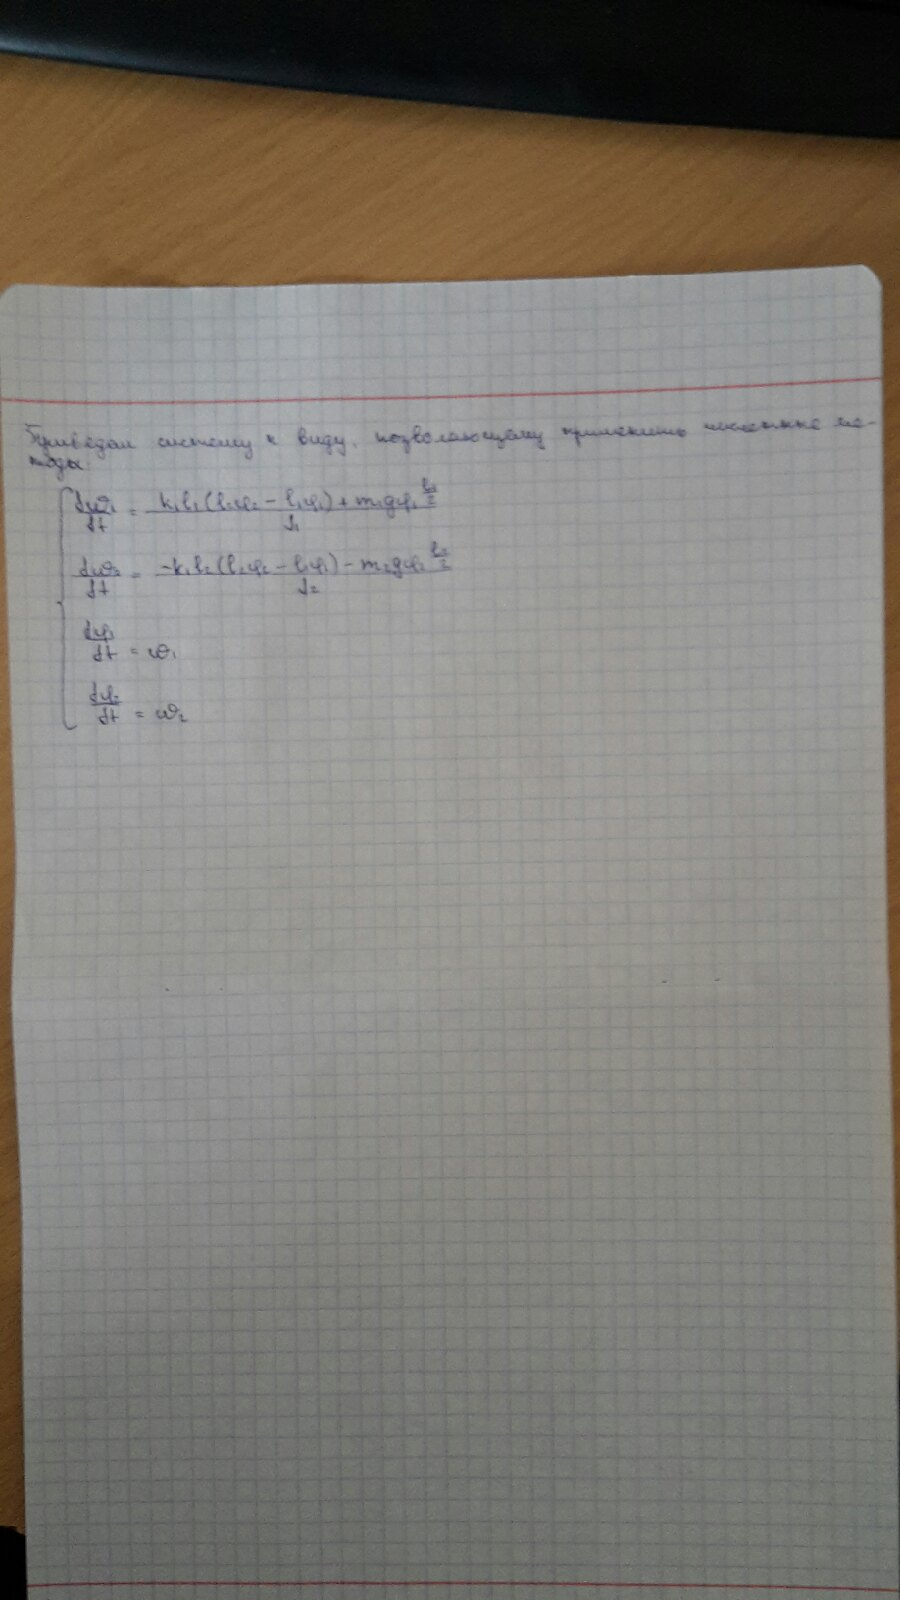 Приведем систему к виду, позволяющему применить численные ме-
тоды:
dω₁/dt = (k₁l₁(l₂φ₂ - l₁φ₁) + m₁gφ₁ l₁/2)/J₁
dω₂/dt = (-k₁l₂(l₂φ₂ - l₁φ₁) - m₂gφ₂ l₂/2)/J₂
dφ₁/dt = ω₁
dφ₂/dt = ω₂